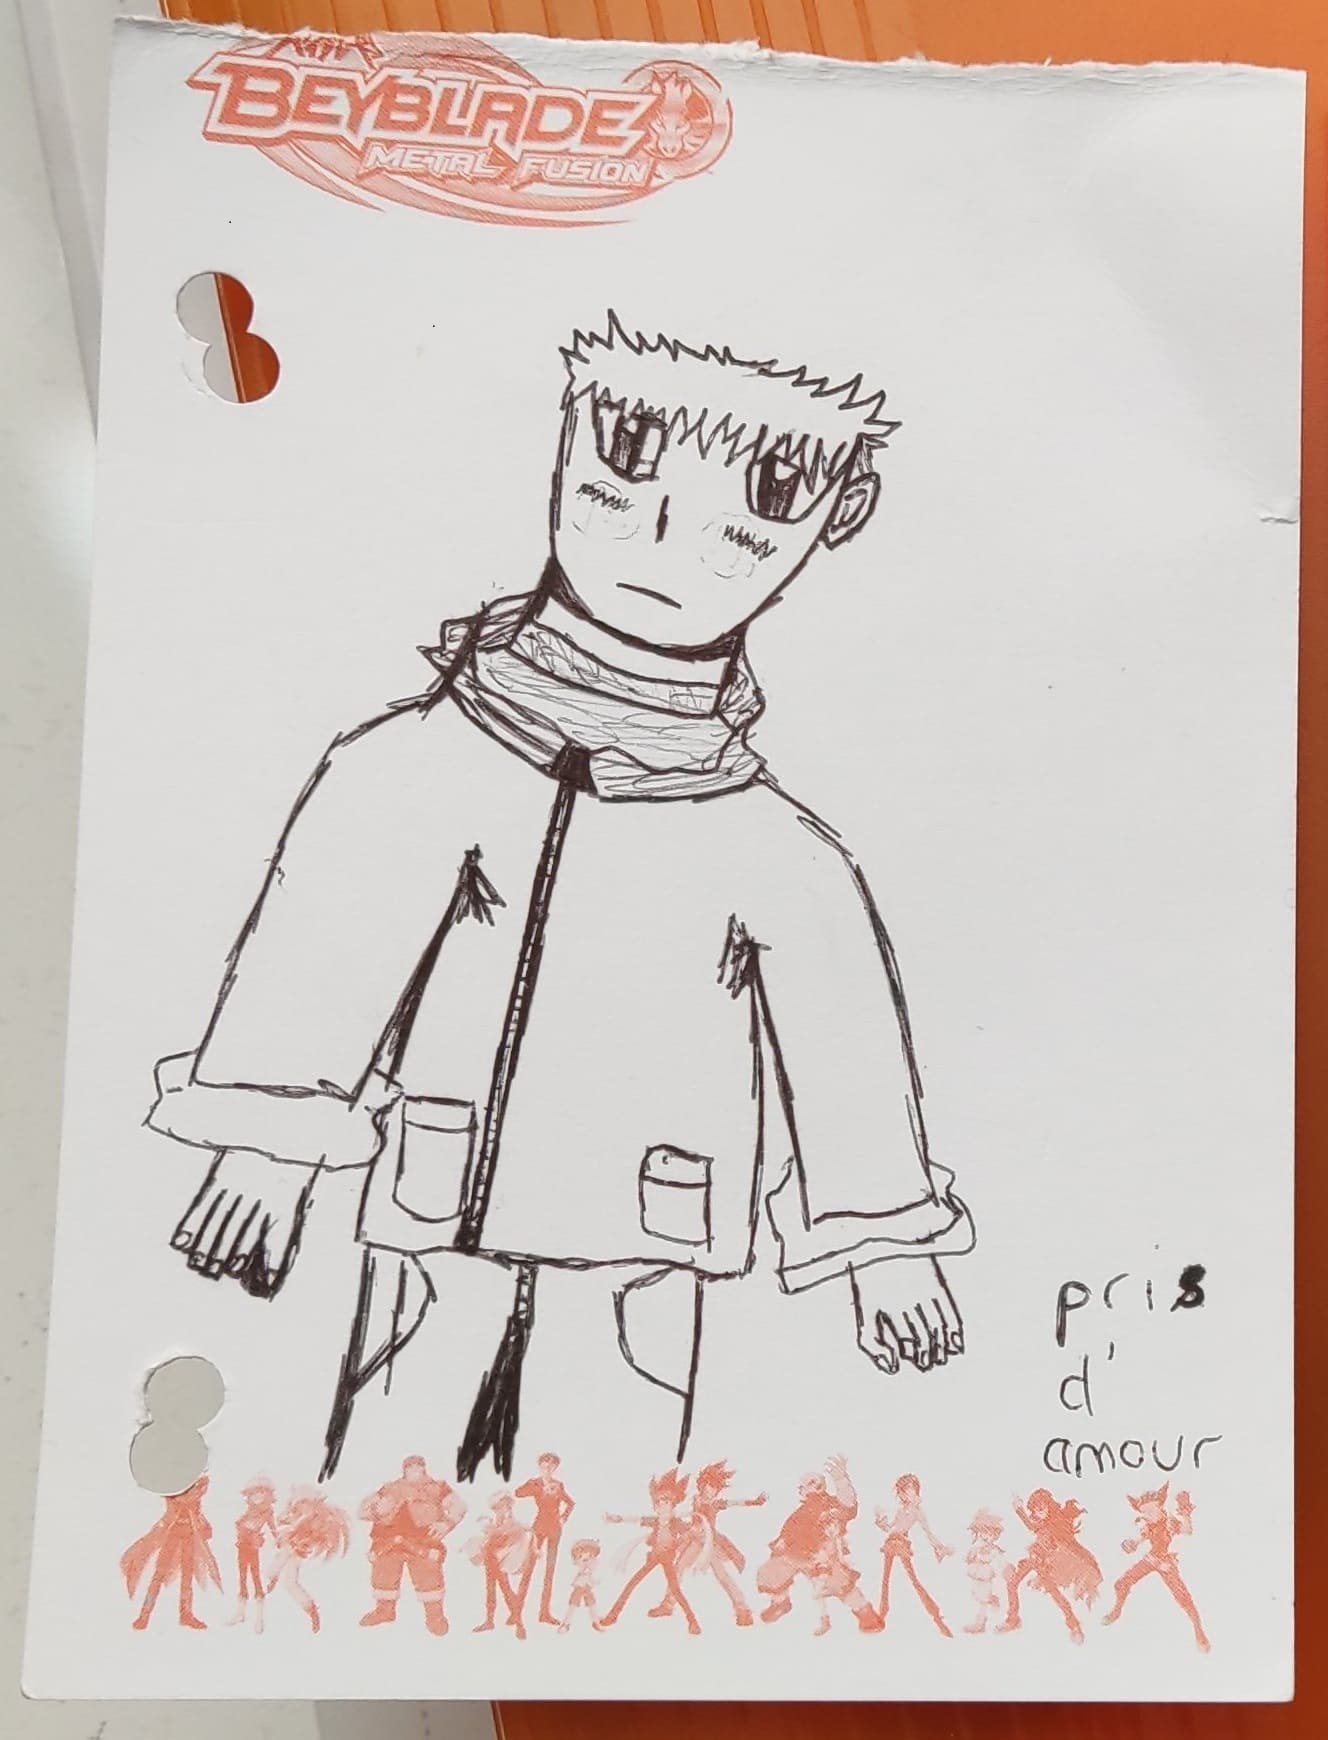 BEYBLADE
METAL FUSION
pris
d'
amour